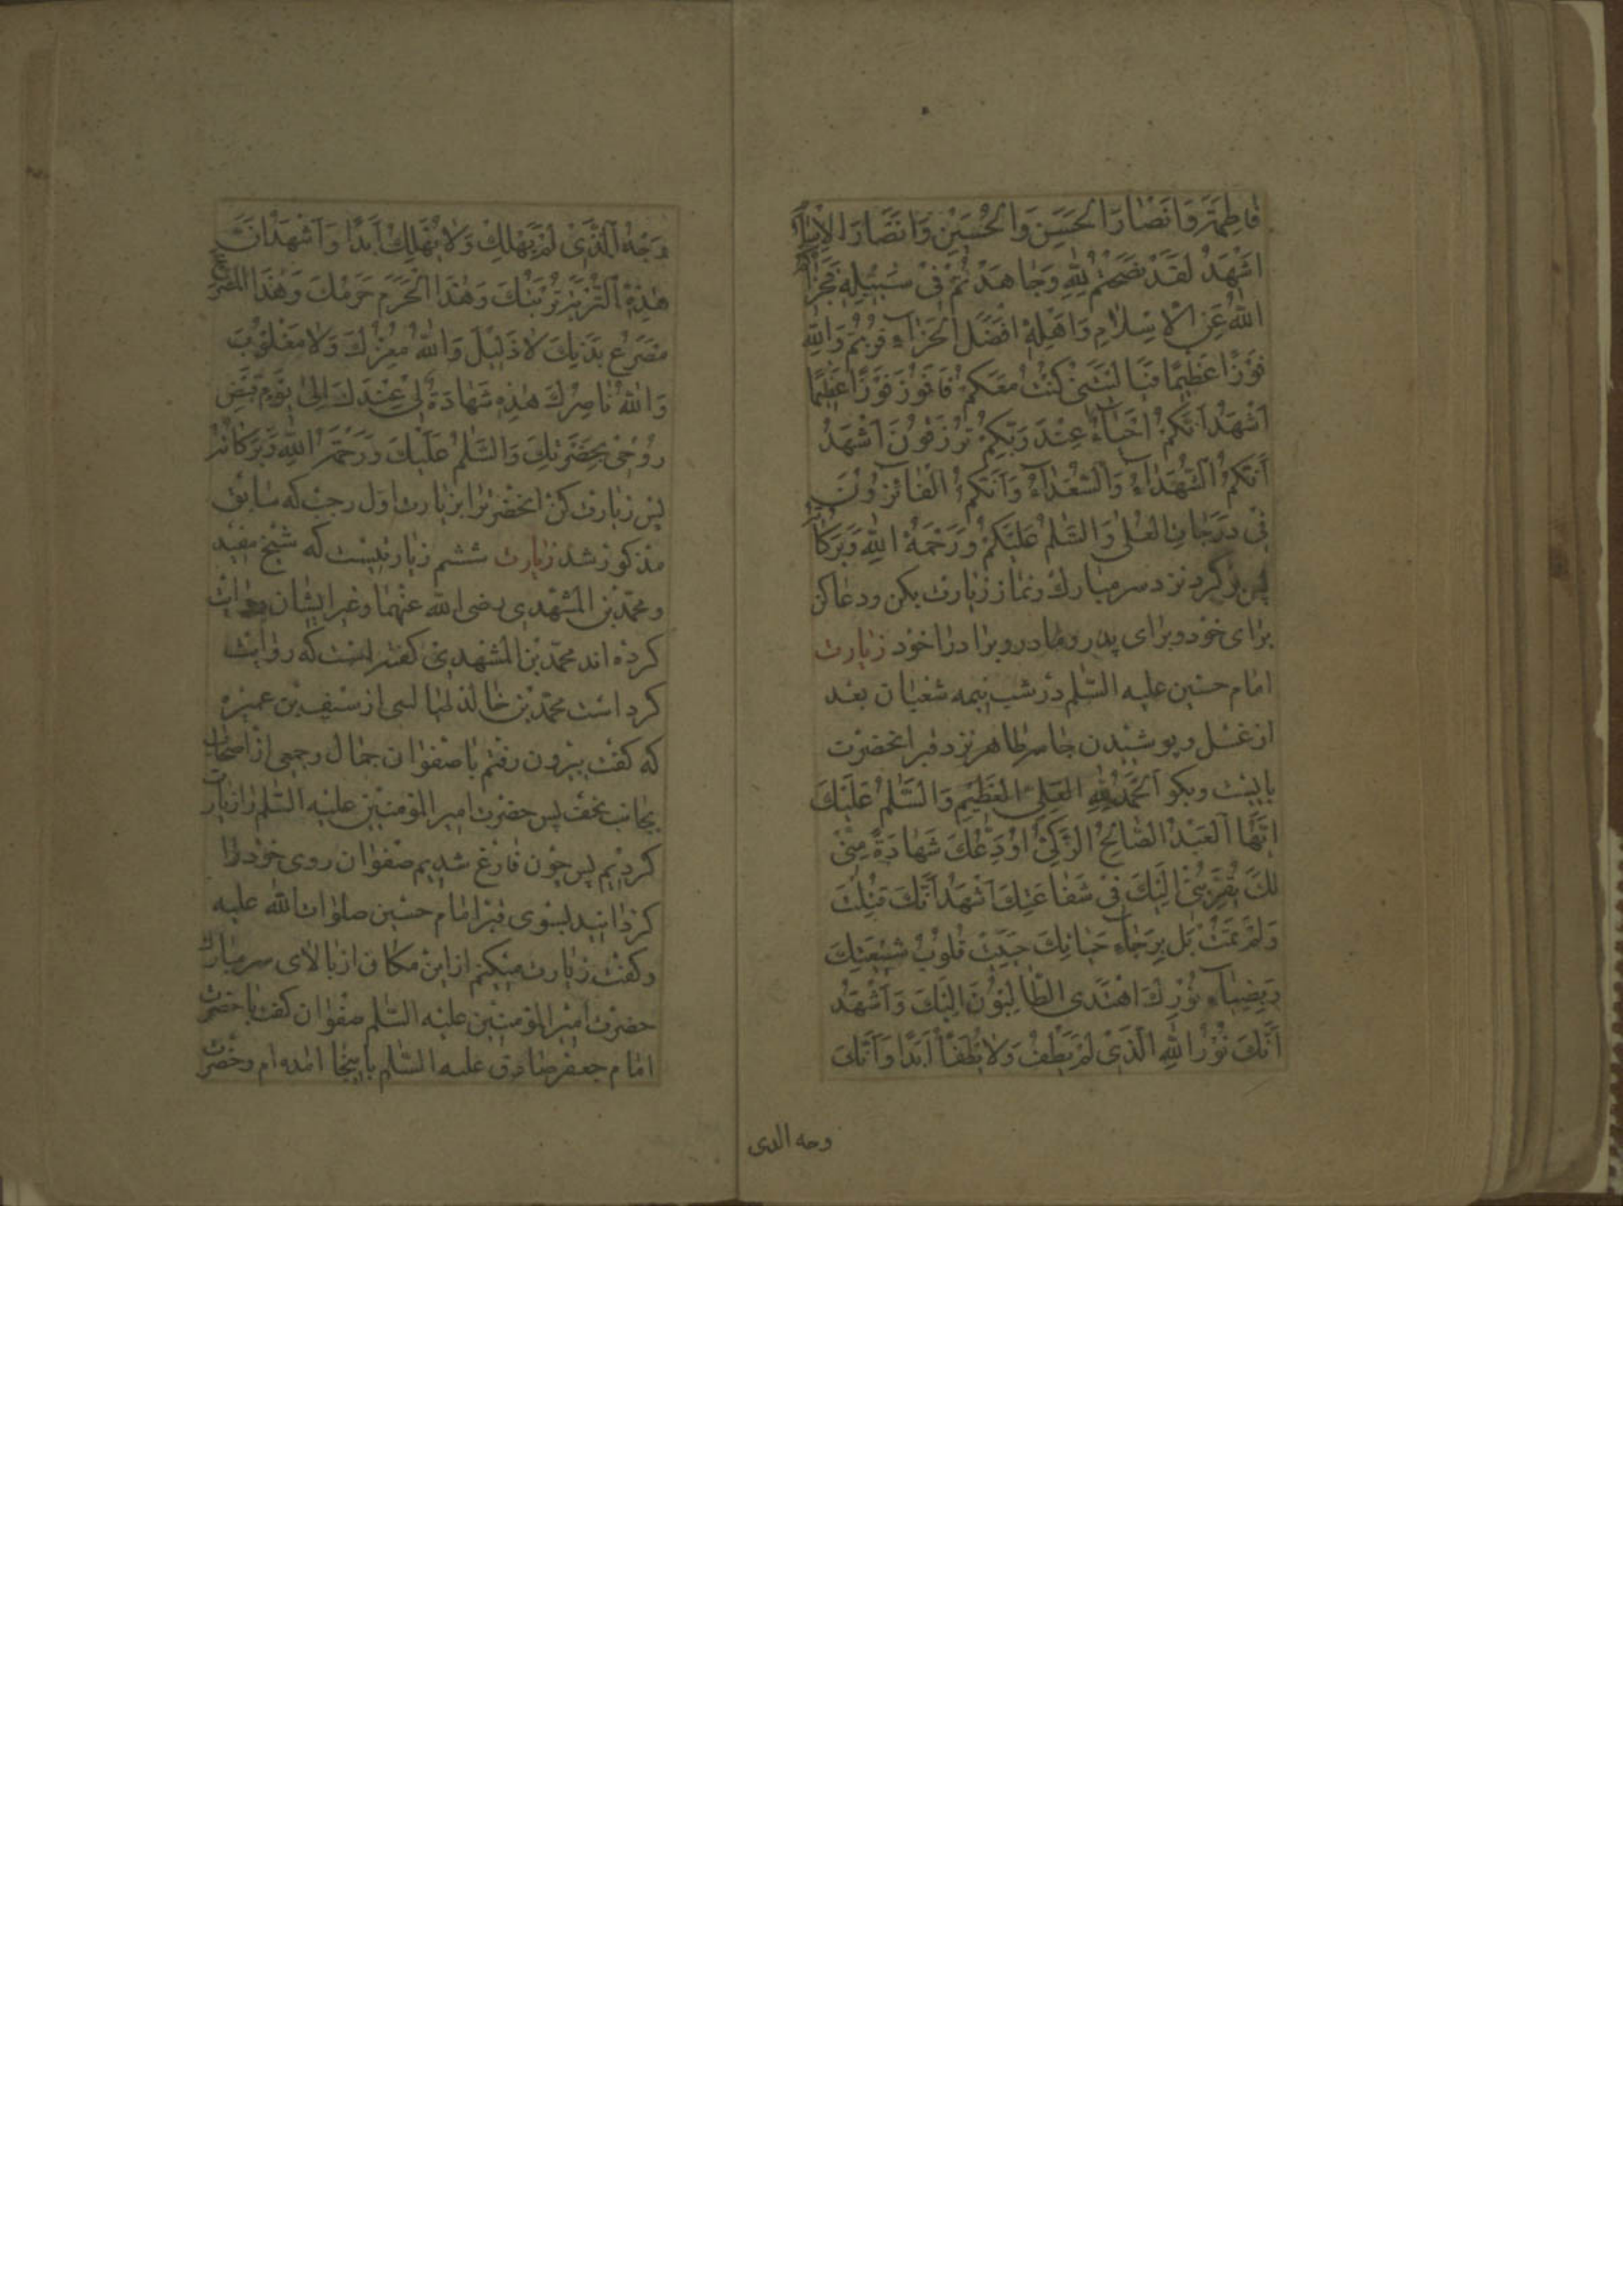 فاطِمَةَ وَاَنْصارَ الحَسَنِ وَالْحُسَيْنِ وَاَنْصَارَ الْاِسْلامِ
اَشْهَدُ لَقَدْ نَصَحْتُمْ لِلّٰهِ وَجاهَدْتُمْ فى سَبيلِهِ فَجَزاكُمُ
اللّٰهُ عَنِ الْاِسْلامِ وَاَهْلِهِ اَفْضَلَ الْجَزاءِ فُزْتُمْ وَاللّٰهِ
فَوْزًا عَظيمًا فَيا لَيْتَنى كُنْتُ مَعَكُمْ فَاَفُوزَ فَوْزًا عَظيمًا
اَشْهَدُ اَنَّكُمْ اَحْياءٌ عِنْدَ رَبِّكُمْ تُرْزَقُونَ اَشْهَدُ
اَنَّكُمُ الشُّهَداءُ وَالسُّعَداءُ وَاَنَّكُمُ الْفائِزُونَ
فى دَرَجاتِ الْعُلى وَالسَّلٰمُ عَلَيْكُمْ وَرَحْمَةُ اللّٰهِ وَبَرَكاتُهُ
پس برگرد نزد سر مبارك و نماز زيارت بكن ودعا كن
براى خود وبراى پدر ومادر وبرادر اخود زيارت
امام حسين عليه السّلم در شب نيمه شعبان بعد
از غسل وپوشيدن جامه طاهر نزد قبر انحضرت
بايست وبكو اَلْحَمْدُ لِلّٰهِ الْعَلِىِّ الْعَظيمِ وَالسَّلٰمُ عَلَيْكَ
اَيُّهَا الْعَبْدُ الصّالِحُ الزَّكِىُّ اُودِعُكَ شَهادَةً مِنّى
لَكَ يُقَرِّبُنى اِلَيْكَ فى شَفاعَتِكَ اَشْهَدُ اَنَّكَ قُتِلْتَ
وَلَمْ تَمُتْ بَلْ بِرَجاءِ حَياتِكَ حَيِيَتْ قُلُوبُ شيعَتِكَ
وَبِضِياءِ نُورِكَ اهْتَدَى الطّالِبُونَ اِلَيْكَ وَاَشْهَدُ
اَنَّكَ نُورُ اللّٰهِ الَّذى لَمْ يُطْفَ وَلا يُطْفَأُ اَبَدًا وَاَنَّكَ
وجه الذى
وَجْهُ اللّٰهِ الَّذى لَمْ يَهْلِكْ وَلا يُهْلَكُ اَبَدًا وَاَشْهَدُ اَنَّ
هٰذِهِ التُّرْبَةَ تُرْبَتُكَ وَهٰذَا الْحَرَمَ حَرَمُكَ وَهٰذَا الْمَصْرَعَ
مَصْرَعُ بَدَنِكَ لا ذَليلَ وَاللّٰهُ مُعِزُّكَ وَلا مَغْلُوبَ
وَاللّٰهُ ناصِرُكَ هٰذِهِ شَهادَةٌ لى عِنْدَكَ اِلى يَوْمِ قَبْضِ
رُوحى بِحَضْرَتِكَ وَالسَّلٰمُ عَلَيْكَ وَرَحْمَةُ اللّٰهِ وَبَرَكاتُهُ
پس زيارت كن انحضرت را بزيارت اول رجب كه سابق
مذكور شد زيارت ششم زيارتيست كه شيخ مفيد
ومحمّد بن المشهدى رضى الله عنهما وغير ايشان روايت
كرده اند محمّد بن المشهدى كفته است كه روايت
كرد است محمّد بن خالد طيالسى از سيف بن عميره
كه كفت بيرون رفتم با صفوان جمال وجمعى از اصحاب
بجانب نجف پس حضرت امير المؤمنين عليه السّلم را زيارت
كرديم پس چون فارغ شديم صفوان روى خود را
كردانيد بسوى قبر امام حسين صلوات الله عليه
وكفت زيارت ميكنم از اين مكان از بالاى سر مبارك
حضرت امير المؤمنين عليه السّلم صفوان كفت با حضرت
امام جعفر صادق عليه السّلم باينجا امده ام وحضرت